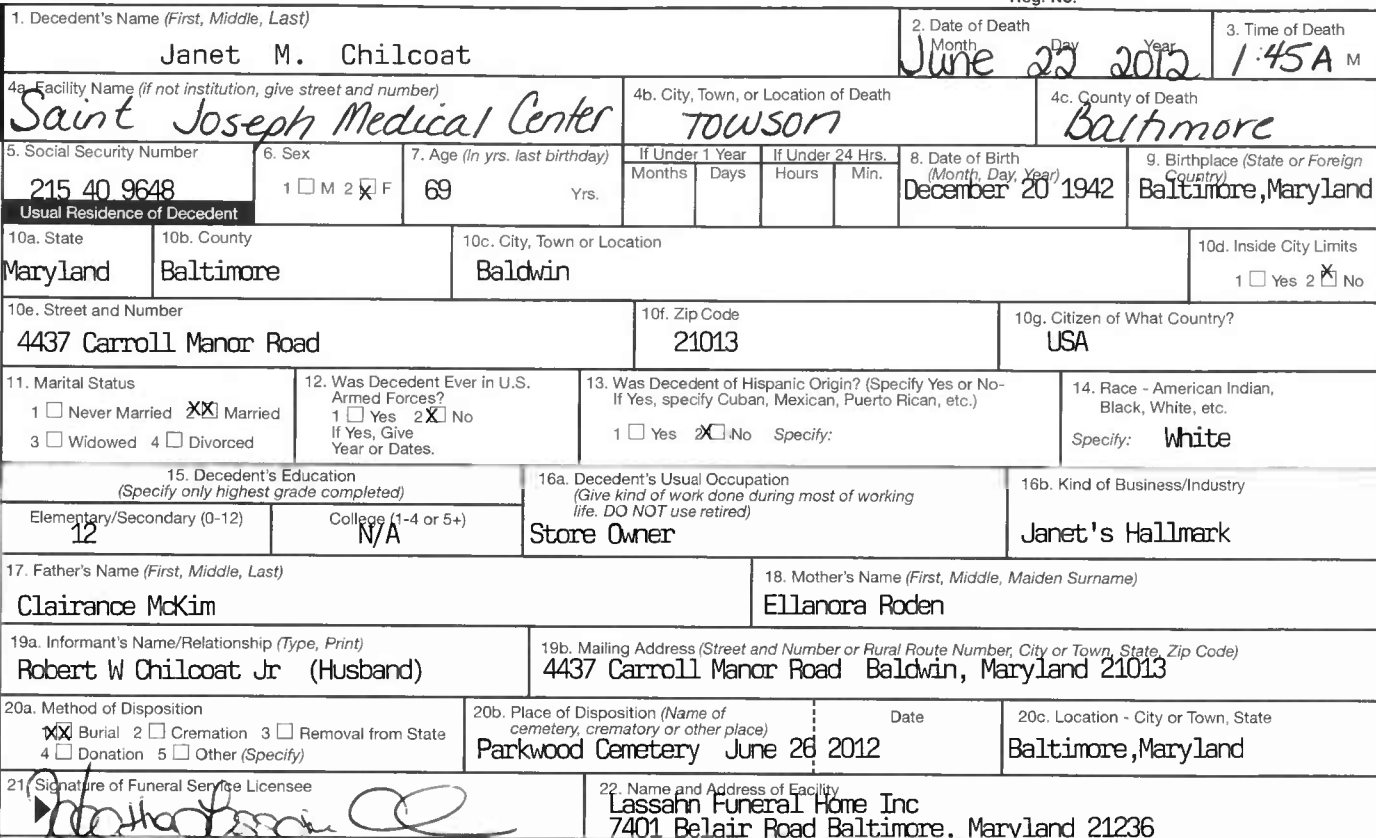 1. Decedent's Name (First, Middle, Last)
Janet M. Chilcoat
2. Date of Death
Month Day Year
June 22 2012
3. Time of Death
1:45 A M
4a. Facility Name (if not institution, give street and number)
Saint Joseph Medical Center
4b. City, Town, or Location of Death
Towson
4c. County of Death
Baltimore
5. Social Security Number
215 40 9648
6. Sex
1 ☐ M 2 ☒ F
7. Age (In yrs. last birthday)
69 Yrs.
If Under 1 Year
Months Days
If Under 24 Hrs.
Hours Min.
8. Date of Birth
(Month, Day, Year)
December 20 1942
9. Birthplace (State or Foreign
Country)
Baltimore,Maryland
Usual Residence of Decedent
10a. State
Maryland
10b. County
Baltimore
10c. City, Town or Location
Baldwin
10d. Inside City Limits
1 ☐ Yes 2 ☒ No
10e. Street and Number
4437 Carroll Manor Road
10f. Zip Code
21013
10g. Citizen of What Country?
USA
11. Marital Status
1 ☐ Never Married 2 XX Married
3 ☐ Widowed 4 ☐ Divorced
12. Was Decedent Ever in U.S.
Armed Forces?
1 ☐ Yes 2 ☒ No
If Yes, Give
Year or Dates.
13. Was Decedent of Hispanic Origin? (Specify Yes or No-
If Yes, specify Cuban, Mexican, Puerto Rican, etc.)
1 ☐ Yes 2 ☒ No Specify:
14. Race - American Indian,
Black, White, etc.
Specify: White
15. Decedent's Education
(Specify only highest grade completed)
Elementary/Secondary (0-12)
12
College (1-4 or 5+)
N/A
16a. Decedent's Usual Occupation
(Give kind of work done during most of working
life. DO NOT use retired)
Store Owner
16b. Kind of Business/Industry
Janet's Hallmark
17. Father's Name (First, Middle, Last)
Clairance McKim
18. Mother's Name (First, Middle, Maiden Surname)
Ellanora Roden
19a. Informant's Name/Relationship (Type, Print)
Robert W Chilcoat Jr (Husband)
19b. Mailing Address (Street and Number or Rural Route Number, City or Town, State, Zip Code)
4437 Carroll Manor Road Baldwin, Maryland 21013
20a. Method of Disposition
1 XX Burial 2 ☐ Cremation 3 ☐ Removal from State
4 ☐ Donation 5 ☐ Other (Specify)
20b. Place of Disposition (Name of
cemetery, crematory or other place)
Date
Parkwood Cemetery June 26 2012
20c. Location - City or Town, State
Baltimore,Maryland
21. Signature of Funeral Service Licensee
22. Name and Address of Facility
Lassahn Funeral Home Inc
7401 Belair Road Baltimore, Maryland 21236